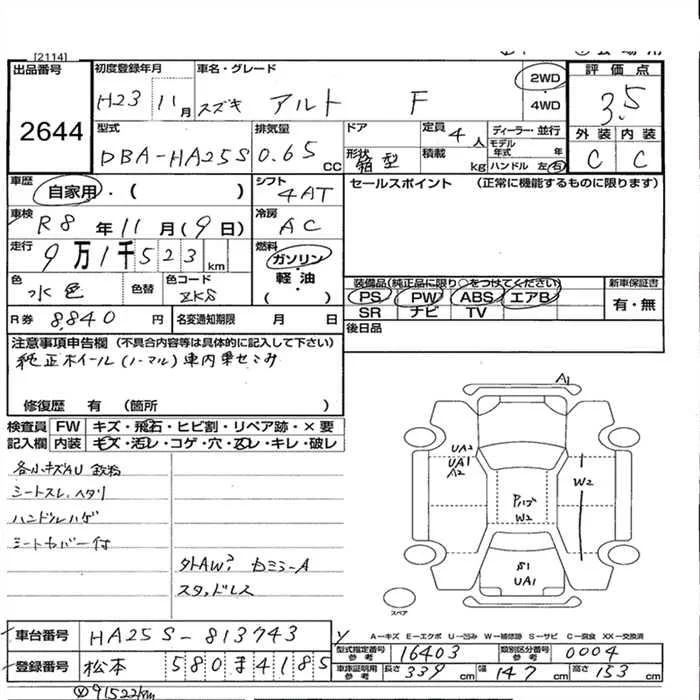 [2114]
出品番号
2644
初度登録年月
H23 11月
車名・グレード
スズキ アルト F
2WD
・
4WD
評価点
3.5
外装 内装
C C
型式
DBA-HA25S
排気量
0.65 cc
ドア
形状
箱型
定員 4人
積載 kg
ディーラー・並行
モデル年式 年
ハンドル 左・右
車歴
自家用・( )
シフト
4AT
セールスポイント (正常に機能するものに限ります)
車検
R8年11月(9日)
冷房
AC
走行
9万1千523km
燃料
ガソリン・
軽油・
( )
色
水色
色替
色コード
ZKS
装備品(純正品に限り○をつけてください)
PS PW ABS エアB
SR ナビ TV
新車保証書
有・無
R券 8,840円
名変通知期限 月 日
後日品
注意事項申告欄(不具合内容等は具体的に記入して下さい)
純正ホイール(ノーマル)車内乗せこみ
修復歴 有 (箇所 )
検査員記入欄
FW キズ・飛石・ヒビ割・リペア跡・×要
内装 キズ・汚レ・コゲ・穴・スレ・キレ・破レ
各小キズAU 鉄粉
シートスレ、ヘタリ
ハンドルハゲ
シートカバー付
外AW? セミラーA
スタッドレス
A1
UA2
UA1
A2
W2
W2
S1
UA1
スペア
車台番号 HA25S-813743
登録番号 松本 580ま4185
A―キズ E―エクボ U―凹み W―補修跡 S―サビ C―腐食 XX―交換済
型式指定番号 参考 16403
類別区分番号 参考 0004
車庫証明用 参考 長さ 339cm 幅 147cm 高さ 153cm
91522km